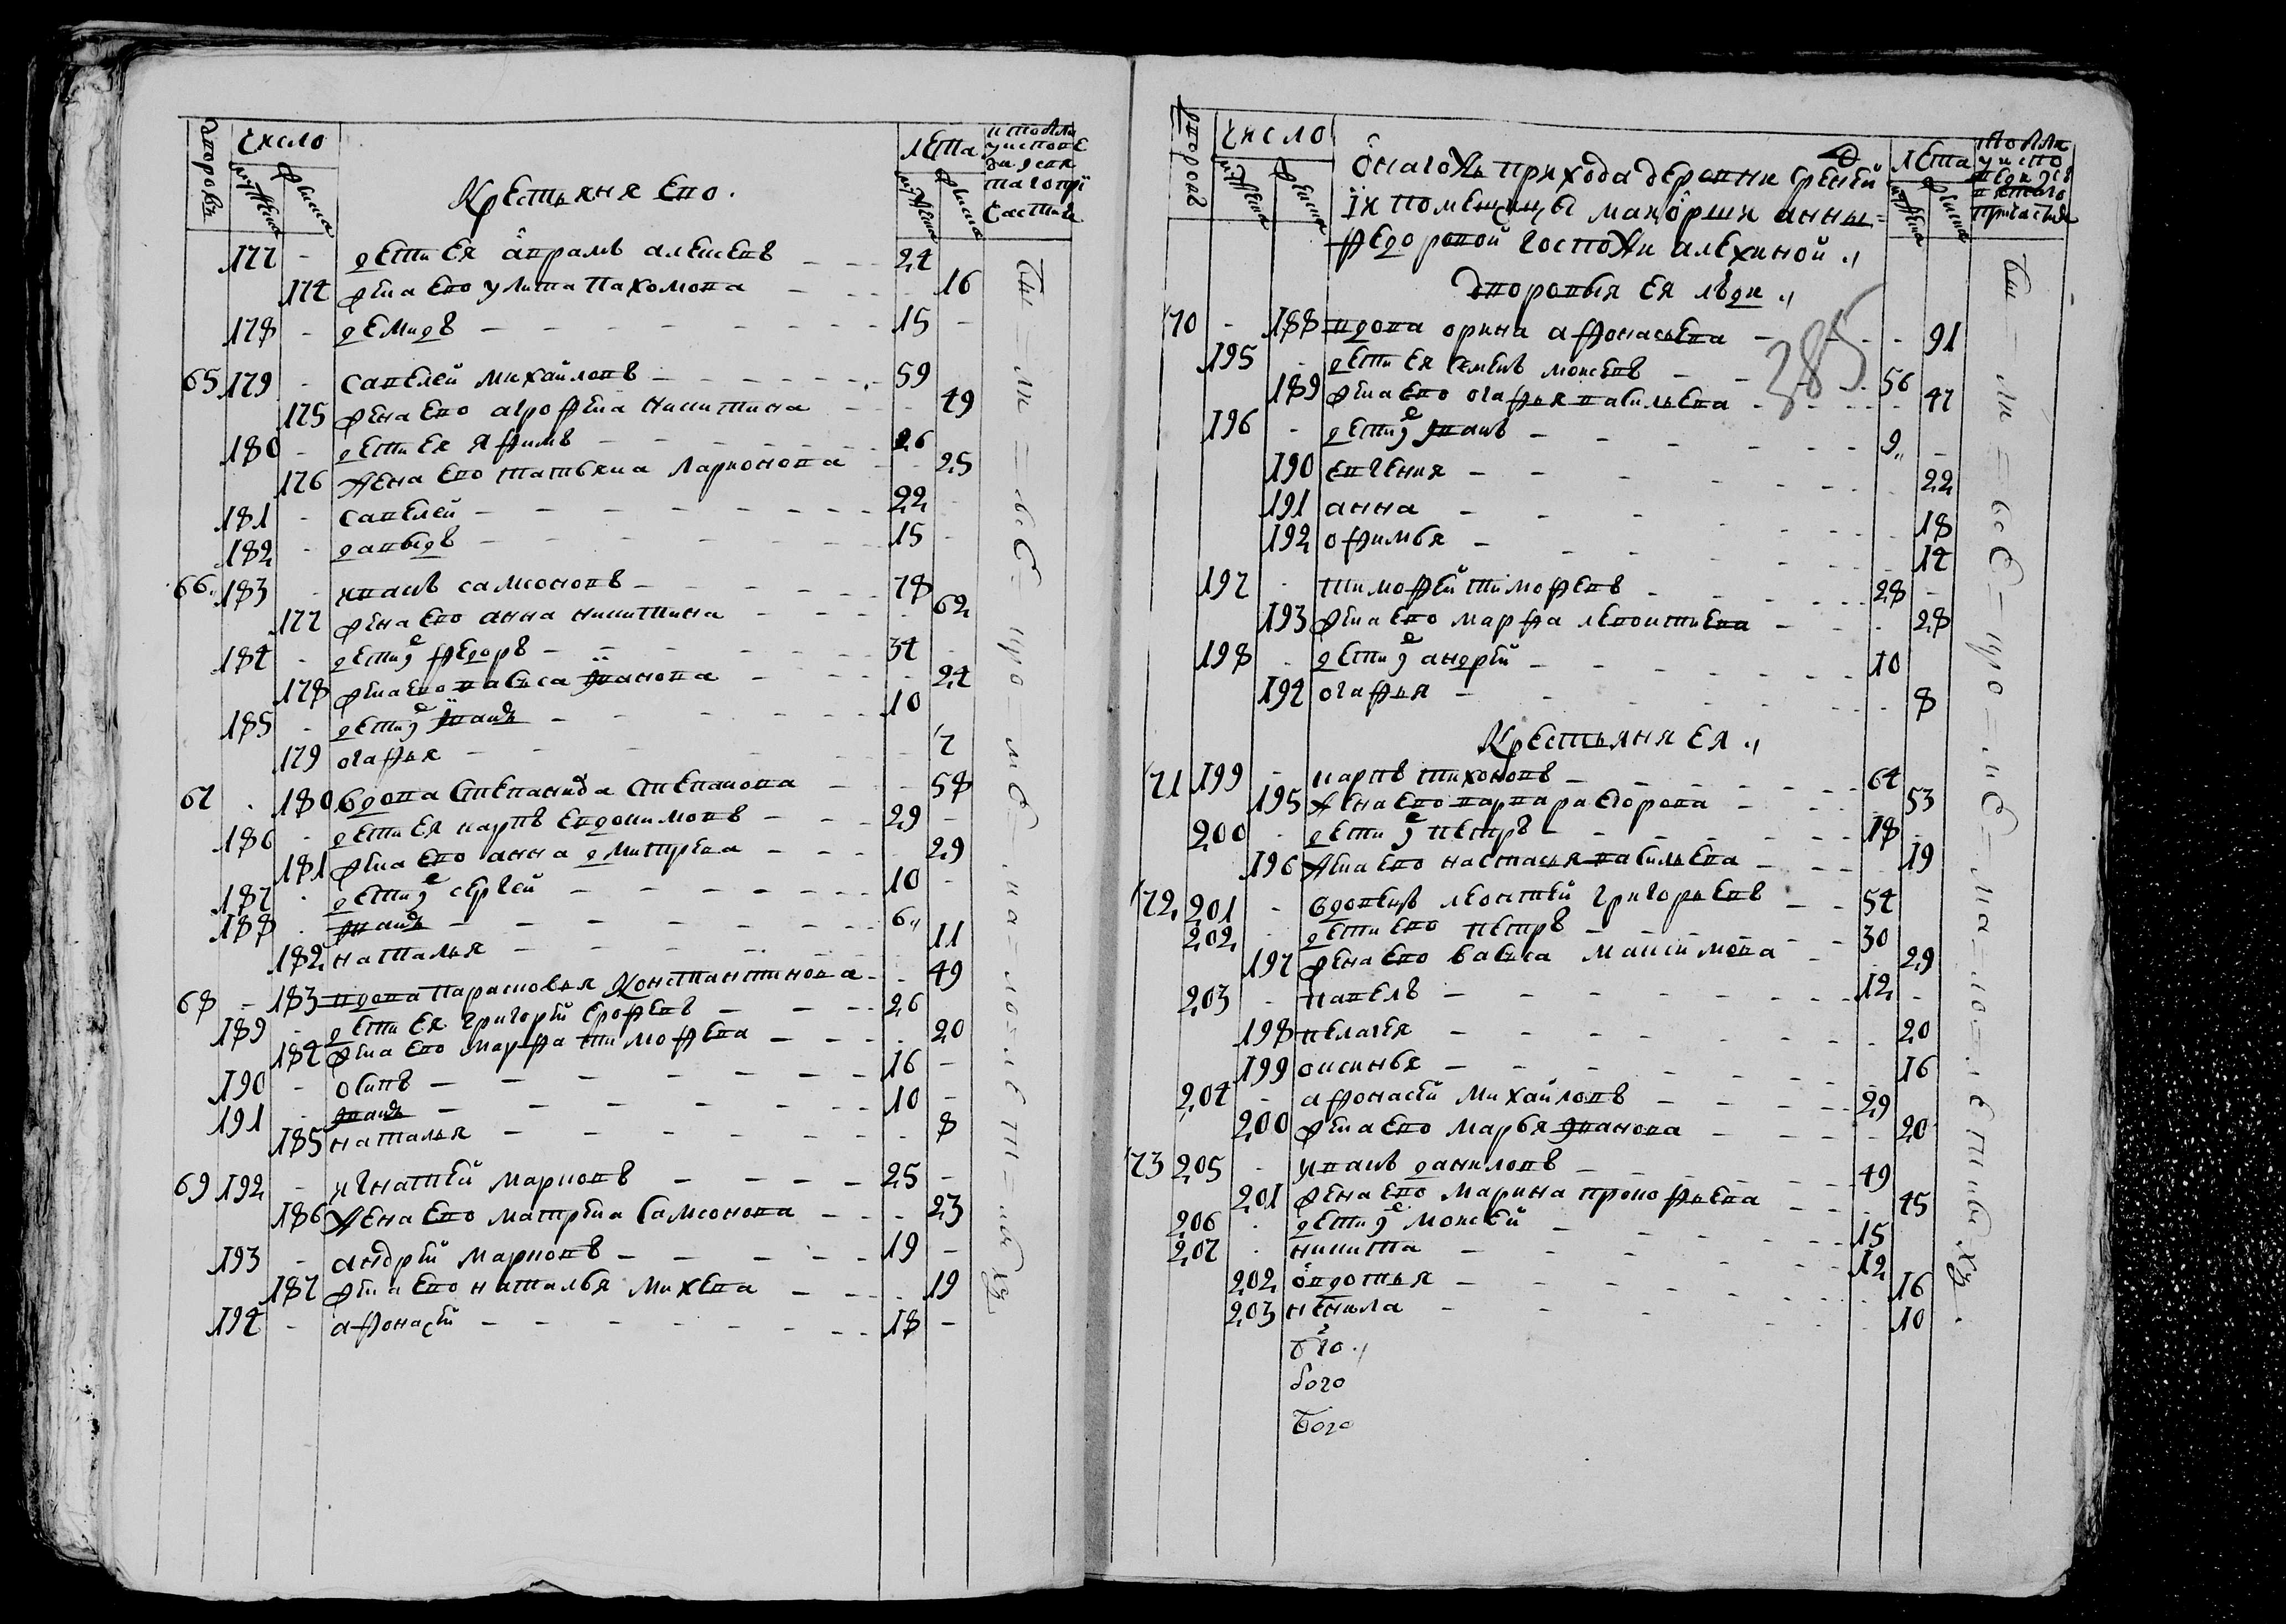 дворовъ
число
мужеска
женска
Крестьяня ево.
лѣта
мужеска
женска
177 - дети ея аврамъ алексѣевъ - - - 24
174 жена ево улита Пахомова - - 16
178 - демидъ - - - 15 -
65 179 - савелей михайловъ - - - 59
175 жена ево агрофена никитина - - 49
180 - дети ея яфимъ - - - 26
176 жена ево татьяна ларионова - - 25
181 - савелей - - - 22
182 - давыдъ - - - 15 -
66 183 - иванъ самсоновъ - - - 78
177 жена ево анна никитина - - - 62
184 - дети ѣ федоръ - - - 34
178 жена ево васса иванова - - - 24
185 - дети ѣ иванъ - - - 10
179 огафья - - - 7
67 180 вдова Степанида Степанова - - 58
186 - дети ея карпъ евдокимовъ - - - 29 -
181 жена ево анна дмитрева - - - 29
187 - дети ѣ сергей - - - 10 -
188 - иванъ - - - 6
182 наталья - - - 11
68 - 183 вдова Парасковья Константинова - - 49
189 - дети ея григорей ерофеевъ - - - 26
184 жена ево марфа тимофеева - - - 20
190 - осипъ - - - 16 -
191 - иванъ - - - 10 -
185 наталья - - - 8
69 192 - игнатей марковъ - - - 25 -
186 жена ево матрена Самсонова - - - 23
193 - андрей марковъ - - - 19 -
187 жена ево наталья михеева - - - 19
194 - афонасей - - - 18 -
бы = ли = все = чро = ме = на = ло = лет = ныхъ
дворовъ
число
мужеска
женска
онагожъ прихода деревни
помещицы маиорши анны
федоровой госпожи алехиной
дворовыя ея люди
лѣта
мужеска
женска
385
70 - 188 вдова орина афонасьева - - - 91
195 - дети ея семенъ моисеевъ - - 56
189 жена ево огафья васильева - - - 47
196 - дети ѣ иванъ - - - 9 -
190 евгения - - - 22
191 анна - - - 18
192 офимья - - - 14
197 - тимофей тимофеевъ - - - 28 -
193 жена ево марфа леонтьева - - - 28
198 - дети ѣ андрей - - - 10
194 огафья - - - 8
Крестьяня ея
71 199 - карпъ тихоновъ - - - 64
195 жена ево варвара егорова - - - 53
200 - дети ѣ петръ - - - 18 -
196 жена ево настасья васильева - - - 19
72 201 - вдовецъ леонтей григорьевъ - - 54
202 - дети ево петръ - - - 30
197 жена ево васса максимова - - 29
203 - павелъ - - - 12 -
198 пелагея - - - 20
199 оксинья - - - 16
204 - афонасей михайловъ - - - 29
200 жена ево марья иванова - - - 20
73 205 - иванъ даниловъ - - - 49
201 жена ево марина прокофьева - - - 45
206 - дети ѣ моисей - - - 15
207 - никита - - - 12
202 овдотья - - - 16
203 ненила - - - 10
бго
бого
Бого
бы = ли = все = чро = ме = на = ло = летныхъ